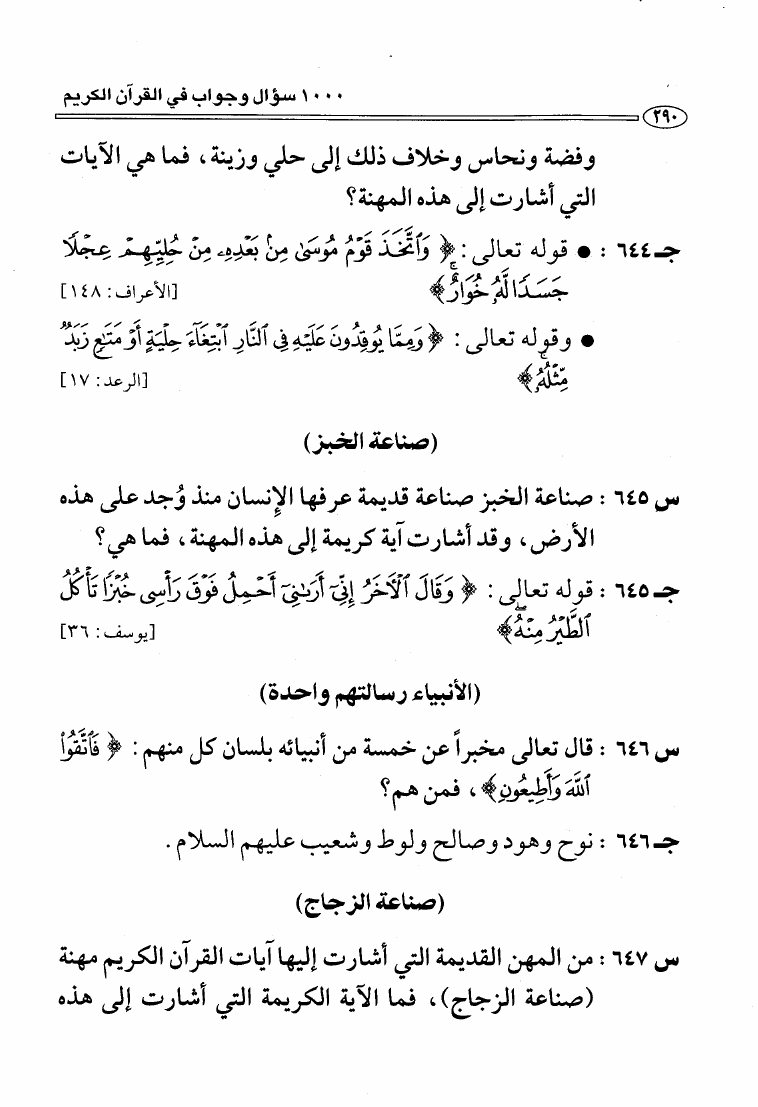 ١٠٠٠ سؤال وجواب في القرآن الكريم
٢٩٠
وفضة ونحاس وخلاف ذلك إلى حلي وزينة، فما هي الآيات
التي أشارت إلى هذه المهنة؟
جـ٦٤٤ : ● قوله تعالى: ﴿ وَٱتَّخَذَ قَوْمُ مُوسَىٰ مِنۢ بَعْدِهِۦ مِنْ حُلِيِّهِمْ عِجْلًا
جَسَدًا لَّهُۥ خُوَارٌ ۚ﴾ [الأعراف: ١٤٨]
● وقوله تعالى: ﴿ وَمِمَّا يُوقِدُونَ عَلَيْهِ فِى ٱلنَّارِ ٱبْتِغَآءَ حِلْيَةٍ أَوْ مَتَٰعٍ زَبَدٌ
مِّثْلُهُۥ ۚ﴾ [الرعد: ١٧]
(صناعة الخبز)
س ٦٤٥ : صناعة الخبز صناعة قديمة عرفها الإنسان منذ وُجد على هذه
الأرض، وقد أشارت آية كريمة إلى هذه المهنة، فما هي؟
جـ٦٤٥ : قوله تعالى: ﴿ وَقَالَ ٱلْءَاخَرُ إِنِّىٓ أَرَىٰنِىٓ أَحْمِلُ فَوْقَ رَأْسِى خُبْزًا تَأْكُلُ
ٱلطَّيْرُ مِنْهُ ۖ﴾ [يوسف: ٣٦]
(الأنبياء رسالتهم واحدة)
س ٦٤٦ : قال تعالى مخبراً عن خمسة من أنبيائه بلسان كل منهم: ﴿ فَٱتَّقُوا۟
ٱللَّهَ وَأَطِيعُونِ﴾، فمن هم؟
جـ٦٤٦ : نوح وهود وصالح ولوط وشعيب عليهم السلام.
(صناعة الزجاج)
س ٦٤٧ : من المهن القديمة التي أشارت إليها آيات القرآن الكريم مهنة
(صناعة الزجاج)، فما الآية الكريمة التي أشارت إلى هذه